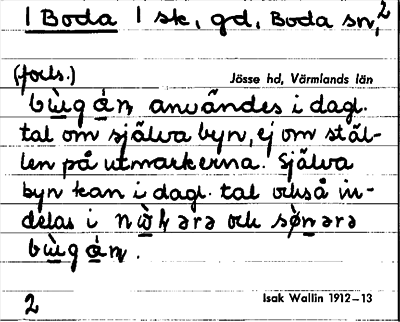 1 Boda 1 sk, gd, Boda sn, 2
(forts.)
Jösse hd, Värmlands län
användes i dagl.
tal om själva byn, ej om stäl-
len på utmarkerna. Själva
byn kan i dagl. tal också in-
delas i och
2
Isak Wallin 1912–13